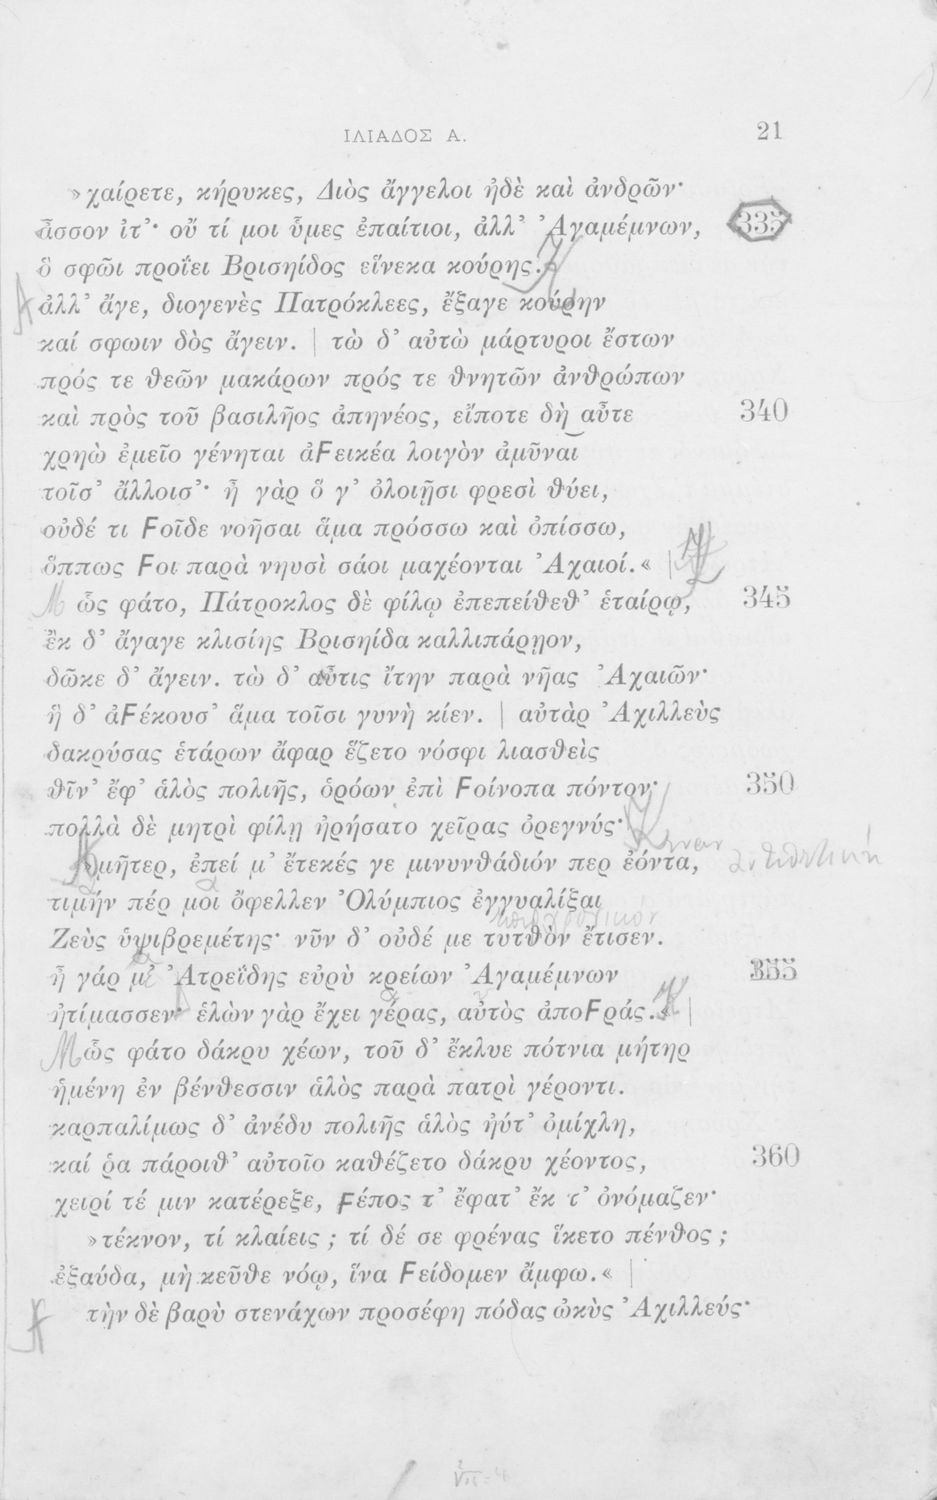 ΙΛΙΑΔΟΣ Α. 21
»χαίρετε, κήρυκες, Διὸς ἄγγελοι ἠδὲ καὶ ἀνδρῶν·
ἆσσον ἴτ'· οὔ τί μοι ὔμες ἐπαίτιοι, ἀλλ' Ἀγαμέμνων, 335
ὃ σφῶι προΐει Βρισηίδος εἵνεκα κούρης.
ἀλλ' ἄγε, διογενὲς Πατρόκλεες, ἔξαγε κούρην
καί σφωιν δὸς ἄγειν. | τὼ δ' αὐτὼ μάρτυροι ἔστων
πρός τε θεῶν μακάρων πρός τε θνητῶν ἀνθρώπων
καὶ πρὸς τοῦ βασιλῆος ἀπηνέος, εἴποτε δὴ αὖτε 340
χρηὼ ἐμεῖο γένηται ἀϜεικέα λοιγὸν ἀμῦναι
τοῖσ' ἄλλοισ'· ἦ γὰρ ὅ γ' ὀλοιῇσι φρεσὶ θύει,
οὐδέ τι Ϝοῖδε νοῆσαι ἅμα πρόσσω καὶ ὀπίσσω,
ὅππως Ϝοι παρὰ νηυσὶ σάοι μαχέονται Ἀχαιοί.« |
Μ ὣς φάτο, Πάτροκλος δὲ φίλῳ ἐπεπείθεθ' ἑταίρῳ, 345
ἐκ δ' ἄγαγε κλισίης Βρισηίδα καλλιπάρῃον,
δῶκε δ' ἄγειν. τὼ δ' αὖτις ἴτην παρὰ νῆας Ἀχαιῶν·
ἣ δ' ἀϜέκουσ' ἅμα τοῖσι γυνὴ κίεν. | αὐτὰρ Ἀχιλλεὺς
δακρύσας ἑτάρων ἄφαρ ἕζετο νόσφι λιασθεὶς
θῖν' ἔφ' ἁλὸς πολιῆς, ὁρόων ἐπὶ Ϝοίνοπα πόντον· 350
πολλὰ δὲ μητρὶ φίλῃ ἠρήσατο χεῖρας ὀρεγνύς·
»μῆτερ, ἐπεί μ' ἔτεκές γε μινυνθάδιόν περ ἐόντα,
τιμήν πέρ μοι ὄφελλεν Ὀλύμπιος ἐγγυαλίξαι
Ζεὺς ὑψιβρεμέτης· νῦν δ' οὐδέ με τυτθὸν ἔτισεν.
ἦ γάρ μ' Ἀτρεΐδης εὐρὺ κρείων Ἀγαμέμνων 355
ἠτίμασσεν· ἑλὼν γὰρ ἔχει γέρας, αὐτὸς ἀποϜράς.« |
Μ ὣς φάτο δάκρυ χέων, τοῦ δ' ἔκλυε πότνια μήτηρ
ἡμένη ἐν βένθεσσιν ἁλὸς παρὰ πατρὶ γέροντι.
καρπαλίμως δ' ἀνέδυ πολιῆς ἁλὸς ἠύτ' ὀμίχλη,
καί ῥα πάροιθ' αὐτοῖο καθέζετο δάκρυ χέοντος, 360
χειρί τέ μιν κατέρεξε, Ϝέπος τ' ἔφατ' ἔκ τ' ὀνόμαζεν·
»τέκνον, τί κλαίεις; τί δέ σε φρένας ἵκετο πένθος;
ἐξαύδα, μὴ κεῦθε νόῳ, ἵνα Ϝείδομεν ἄμφω.« |
τὴν δὲ βαρὺ στενάχων προσέφη πόδας ὠκὺς Ἀχιλλεύς·